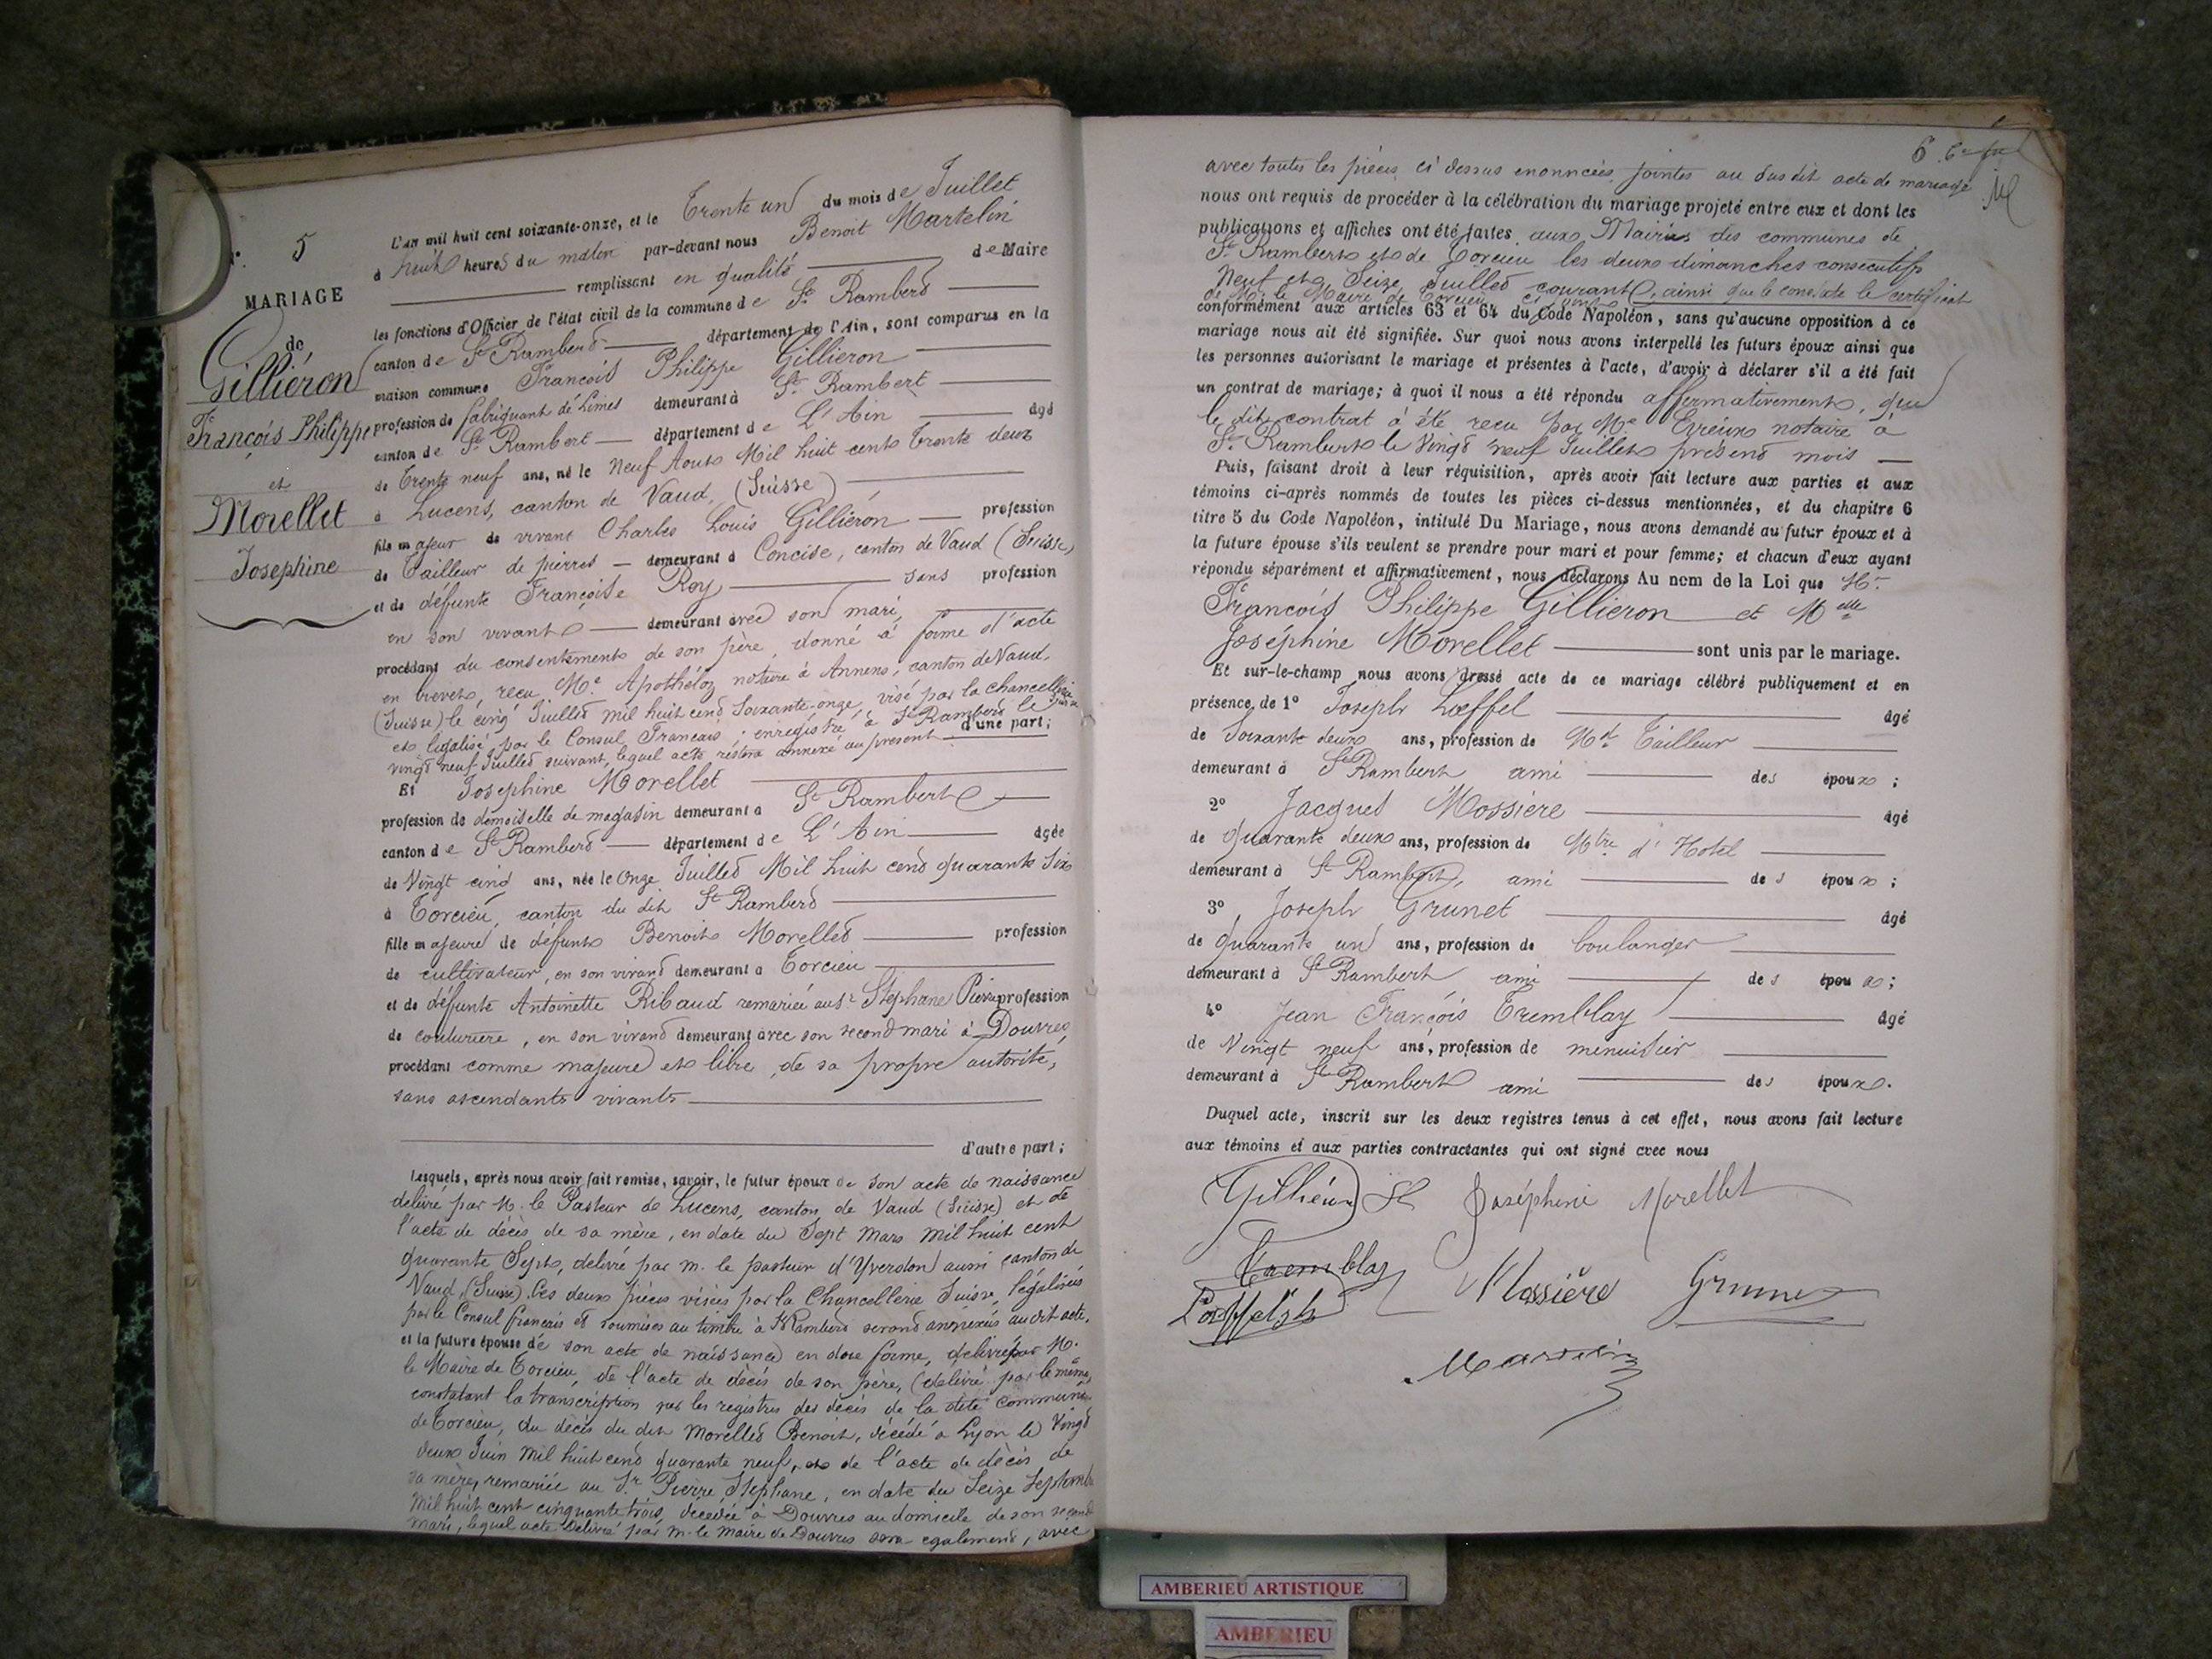 N°. 5
MARIAGE
de
Gilliéron
François Philippe
et
Morellet
Josephine
L'an mil huit cent soixante-onze, et le Trente un du mois de Juillet
à huit heures du matin par-devant nous Benoit Martelin
remplissant en qualité de Maire
les fonctions d'Officier de l'état civil de la commune de St. Rambert
canton de St Rambert département de l'Ain, sont comparus en la
maison commune François Philippe Gillieron
profession de fabriquant de Limes demeurant à St. Rambert
canton de St. Rambert département de L'Ain âgé
de Trente neuf ans, né le Neuf Aout Mil huit cent Trente deux
à Lucens, canton de Vaud, (Suisse)
fils majeur de vivant Charles Louis Gilliéron profession
de Tailleur de pierres demeurant à Concise, canton de Vaud (Suisse)
et de défunte Françoise Roy sans profession
en son vivant demeurant avec son mari,
procédant du consentement de son père, donné à forme d'acte
en brevet, reçu Me. Apothéloz notaire à Annens, canton de Vaud
(Suisse) le cinq Juillet mil huit cent Soixante-onze, visé par la chancellerie Suisse
et légalisé par le Consul Français; enregistré à St Rambert le
vingt neuf Juillet suivant, lequel acte restera annexé au présent d'une part;
Et Josephine Morellet
profession de demoiselle de magasin demeurant à St Rambert
canton de St Rambert département de L'Ain âgée
de Vingt cinq ans, née le Onze Juillet Mil huit cent quarante six
à Torcieu, canton du dit St Rambert
fille majeure de défunt Benoit Morellet profession
de cultivateur, en son vivant demeurant à Torcieu
et de défunte Antoinette Ribaud remariée au Sr Stéphane Pierre profession
de couturière, en son vivant demeurant avec son second mari à Douvres,
procédant comme majeure et libre, de sa propre autorité,
sans ascendants vivants
d'autre part;
Lesquels, après nous avoir fait remise, savoir, le futur époux de son acte de naissance
délivré par M. le Pasteur de Lucens, canton de Vaud (Suisse) et de
l'acte de décès de sa mère, en date du Sept Mars mil huit cent
quarante Sept, délivré par m. le pasteur d'Yverdon aussi canton de
Vaud, (Suisse). Ces deux pièces visées par la Chancellerie Suisse, légalisées
par le Consul français et soumises au timbre à St Rambert seront annexées au dit acte,
et la future épouse de son acte de naissance en due forme, délivré par M.
le Maire de Torcieu, de l'acte de décès de son père, (délivré par le même,
constatant la transcription sur les registres des décès de la dite commune
de Torcieu, du décès du dit Morellet Benoit, décédé à Lyon le Vingt
deux Juin Mil huit cent quarante neuf, et de l'acte de décès de
sa mère, remariée au Sr. Pierre Stéphane, en date du Seize Septembre
Mil huit cent cinquante trois, décédée à Douvres au domicile de son second
mari, lequel acte délivré par m. le maire de Douvres sera également, avec
6
avec toutes les pièces ci dessus enonncées jointes au susdit acte de mariage
nous ont requis de procéder à la célébration du mariage projeté entre eux et dont les
publications et affiches ont été faites aux Mairies des communes de
St. Rambert et de Torcieu les deux dimanches consecutifs
Neuf et Seize Juillet courant, ainsi que le constate le certificat
de Mr. le Maire de Torcieu
conformément aux articles 63 et 64 du Code Napoléon, sans qu'aucune opposition à ce
mariage nous ait été signifiée. Sur quoi nous avons interpellé les futurs époux ainsi que
les personnes autorisant le mariage et présentes à l'acte, d'avoir à déclarer s'il a été fait
un contrat de mariage; à quoi il nous a été répondu affirmativement, que
le dit contrat à été reçu par Me Evieux notaire à
St. Rambert le Vingt neuf Juillet présent mois
Puis, faisant droit à leur réquisition, après avoir fait lecture aux parties et aux
témoins ci-après nommés de toutes les pièces ci-dessus mentionnées, et du chapitre 6
titre 5 du Code Napoléon, intitulé Du Mariage, nous avons demandé au futur époux et à
la future épouse s'ils veulent se prendre pour mari et pour femme; et chacun d'eux ayant
répondu séparément et affirmativement, nous déclarons Au nom de la Loi que Mr.
François Philippe Gillieron et Melle
Joséphine Morellet sont unis par le mariage.
Et sur-le-champ nous avons dressé acte de ce mariage célébré publiquement et en
présence de 1° Joseph Lœffel âgé
de Soixante deux ans, profession de Md. Tailleur
demeurant à St Rambert ami des époux;
2° Jacques Mossiere âgé
de quarante deux ans, profession de Mtre d'Hotel
demeurant à St Rambert, ami des époux;
3° Joseph Grunet âgé
de quarante un ans, profession de boulanger
demeurant à St Rambert ami des époux;
4° Jean François Tremblay âgé
de Vingt neuf ans, profession de menuisier
demeurant à St Rambert ami des époux.
Duquel acte, inscrit sur les deux registres tenus à cet effet, nous avons fait lecture
aux témoins et aux parties contractantes qui ont signé avec nous
Gilliéron Joséphine Morellet
Tremblay Mossière Grunet
Martelin
AMBERIEU ARTISTIQUE
AMBERIEU